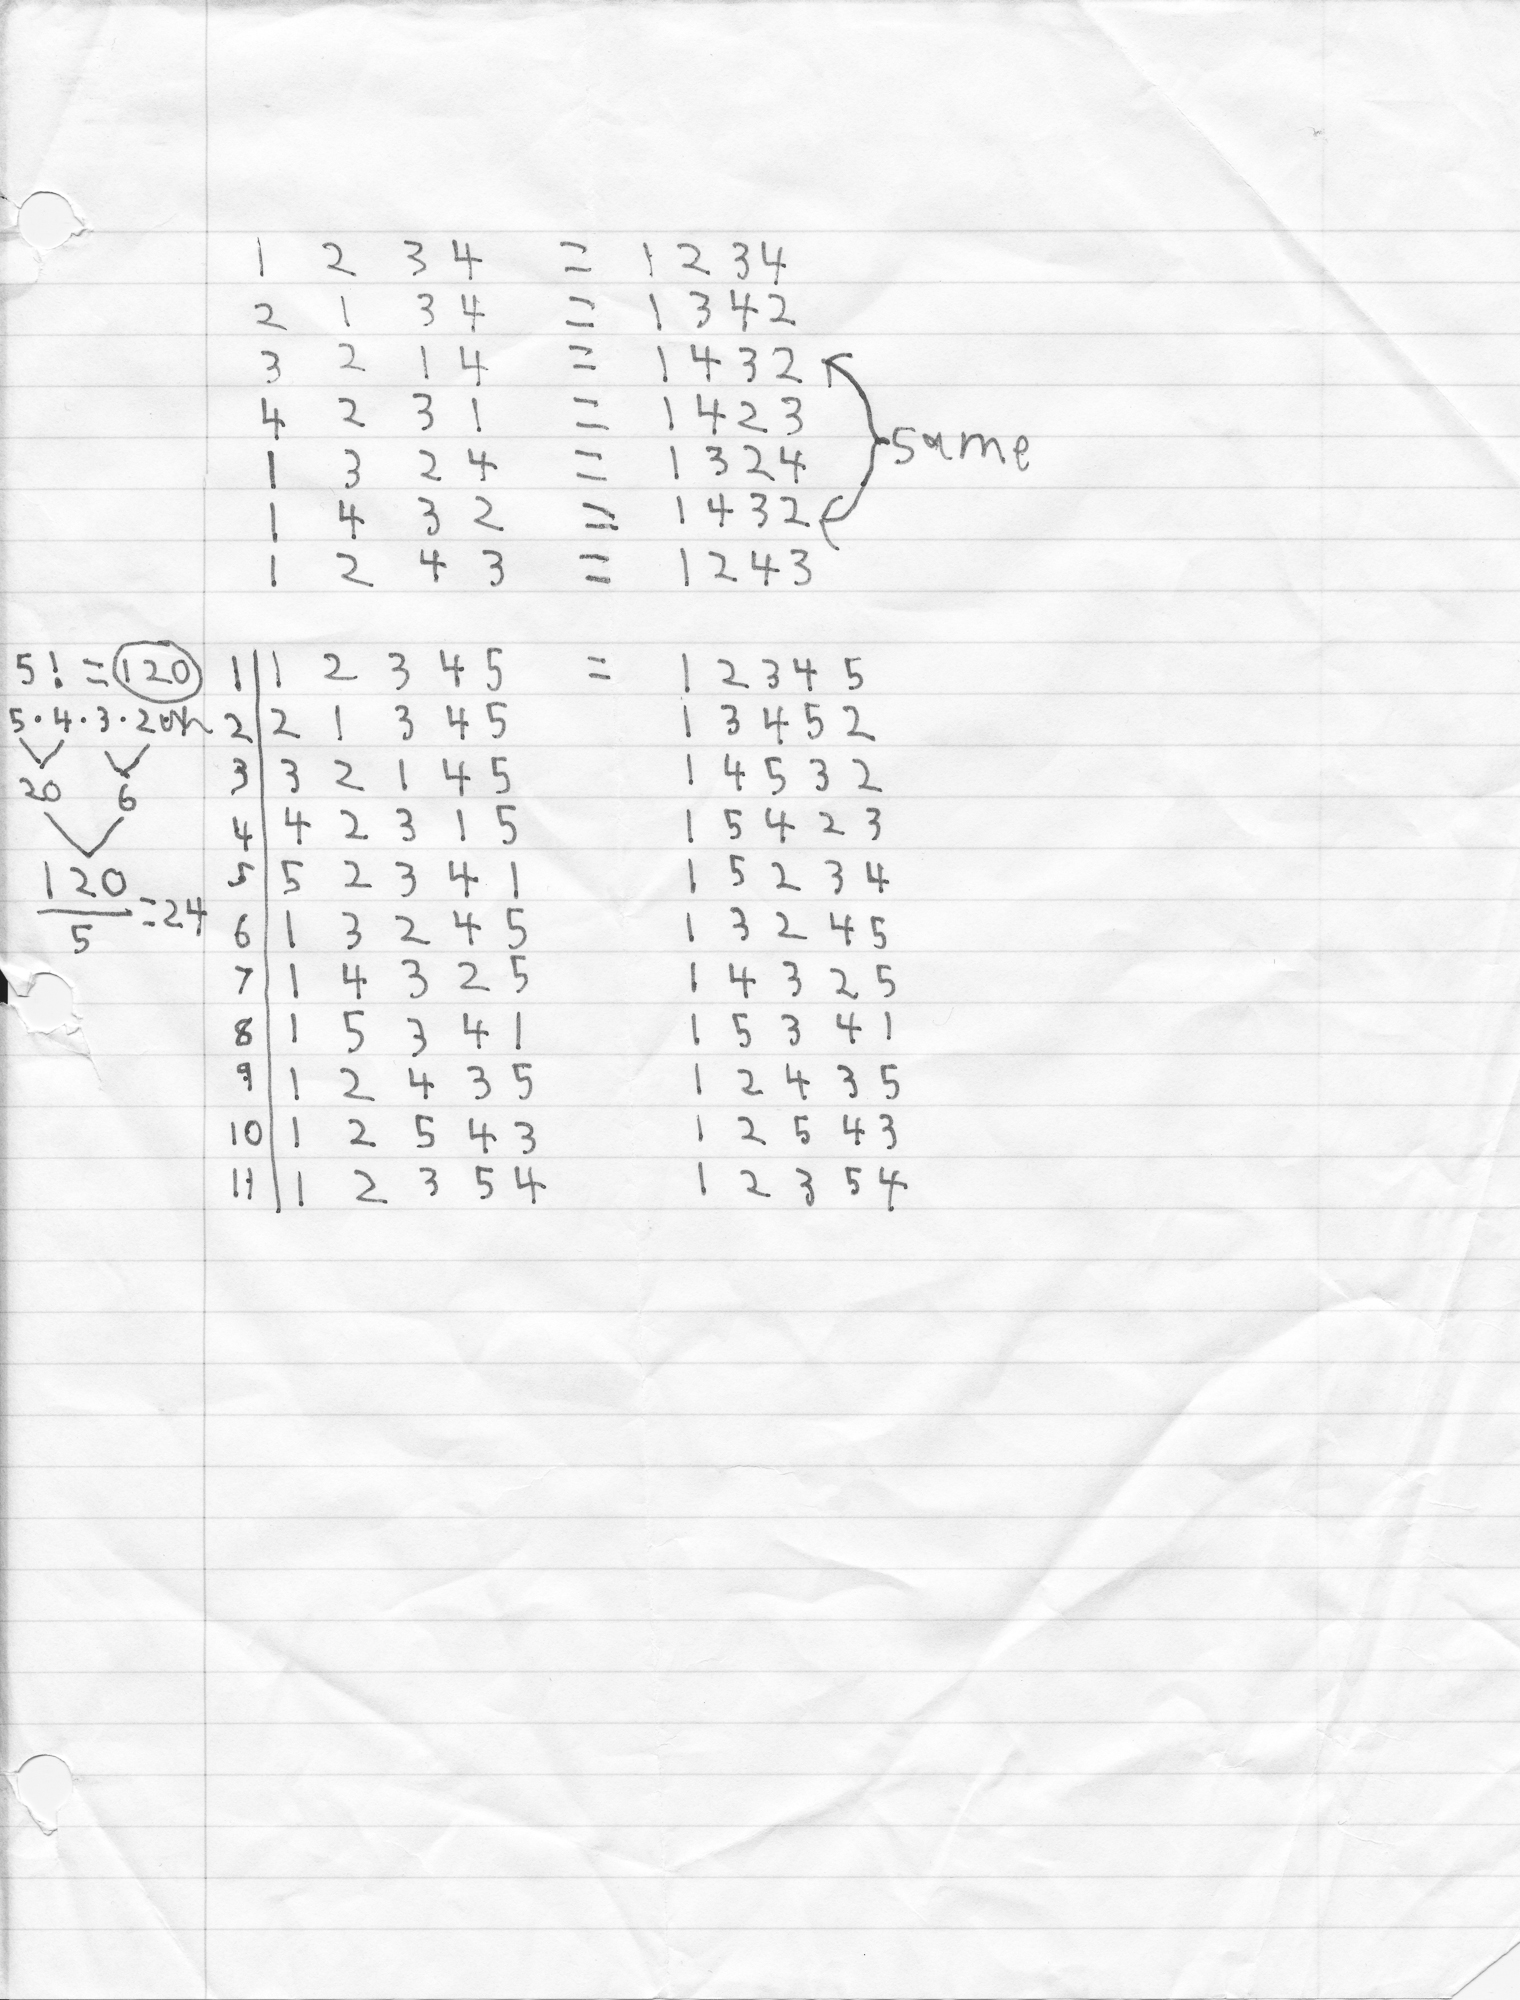 1 2 3 4 = 1 2 3 4
2 1 3 4 = 1 3 4 2
3 2 1 4 = 1 4 3 2
4 2 3 1 = 1 4 2 3
same
1 3 2 4 = 1 3 2 4
1 4 3 2 = 1 4 3 2
1 2 4 3 = 1 2 4 3
5! = 120 1 | 1 2 3 4 5 = 1 2 3 4 5
5 · 4 · 3 · 2 2 | 2 1 3 4 5 1 3 4 5 2
20 6 3 | 3 2 1 4 5 1 4 5 3 2
4 | 4 2 3 1 5 1 5 4 2 3
120 5 | 5 2 3 4 1 1 5 2 3 4
5 = 24 6 | 1 3 2 4 5 1 3 2 4 5
7 | 1 4 3 2 5 1 4 3 2 5
8 | 1 5 3 4 1 1 5 3 4 1
9 | 1 2 4 3 5 1 2 4 3 5
10 | 1 2 5 4 3 1 2 5 4 3
11 | 1 2 3 5 4 1 2 3 5 4